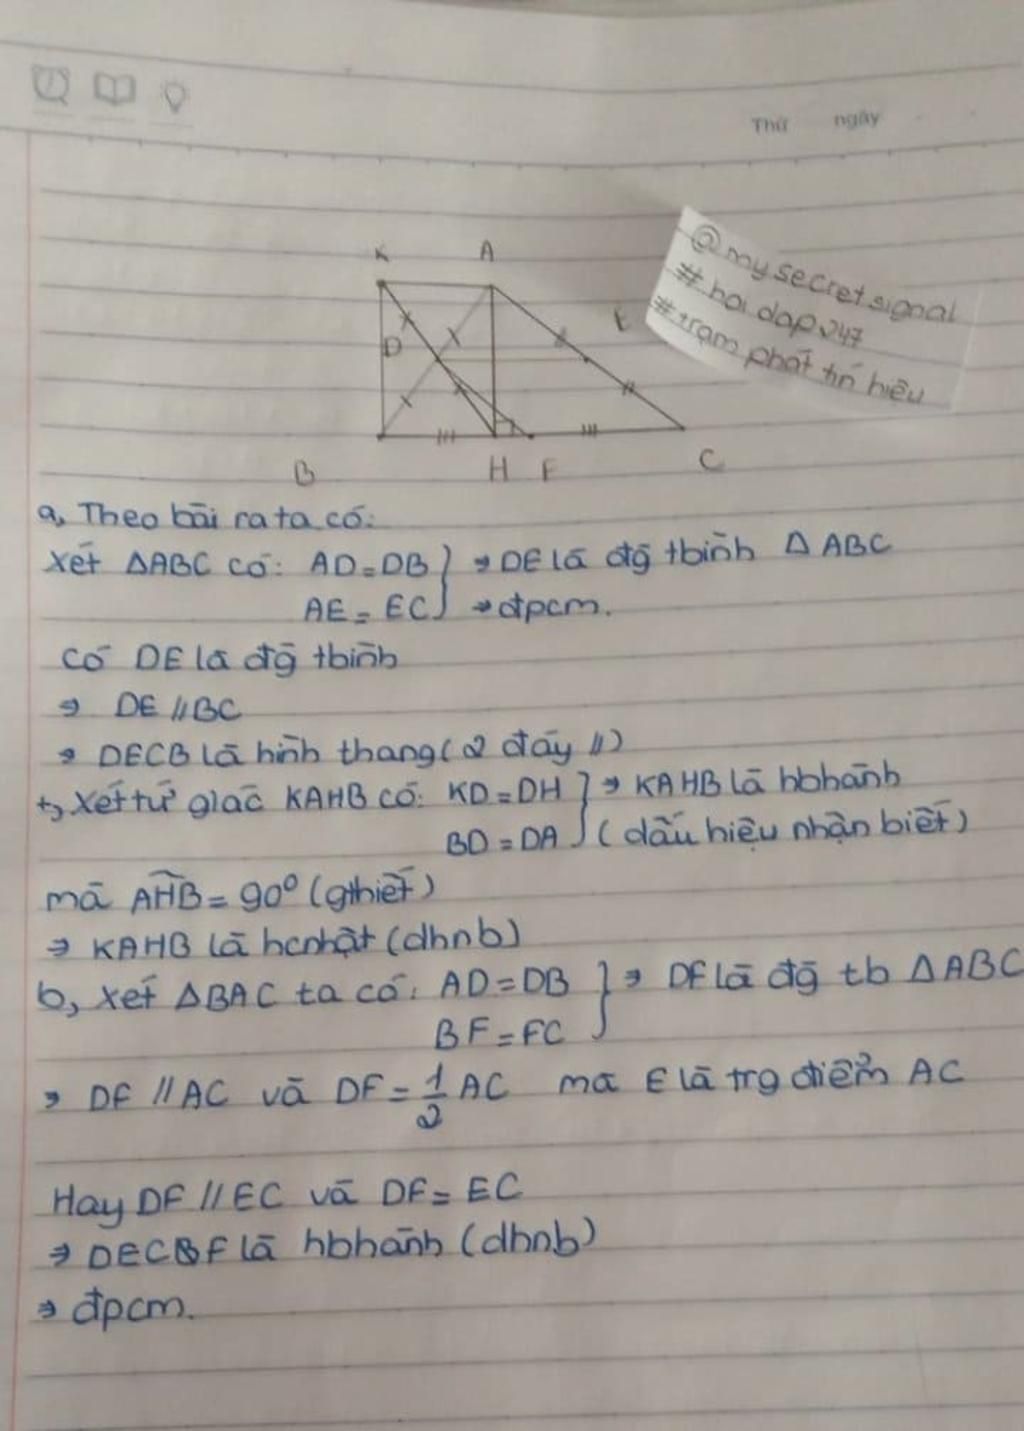 Thứ ngày
@mysecretsignal
#hoidap247
#trạm phát tín hiệu
K A
E
D
B H F C
a, Theo bài ra ta có:
Xét ΔABC có: AD=DB } ⇒ DE là đg tbình ΔABC
AE = EC } ⇒ đpcm.
Có DE là đg tbình
⇒ DE // BC
⇒ DECB là hình thang (2 đáy //)
+, Xét tứ giác KAHB có: KD=DH } ⇒ KAHB là hbhành
BD = DA } (dấu hiệu nhận biết)
mà AHB = 90° (gthiết)
⇒ KAHB là hcnhật (dhnb)
b, Xét ΔBAC ta có: AD=DB } ⇒ DF là đg tb ΔABC
BF = FC }
⇒ DF // AC và DF = 1/2 AC mà E là trg điểm AC
Hay DF // EC và DF = EC
⇒ DECF là hbhành (dhnb)
⇒ đpcm.